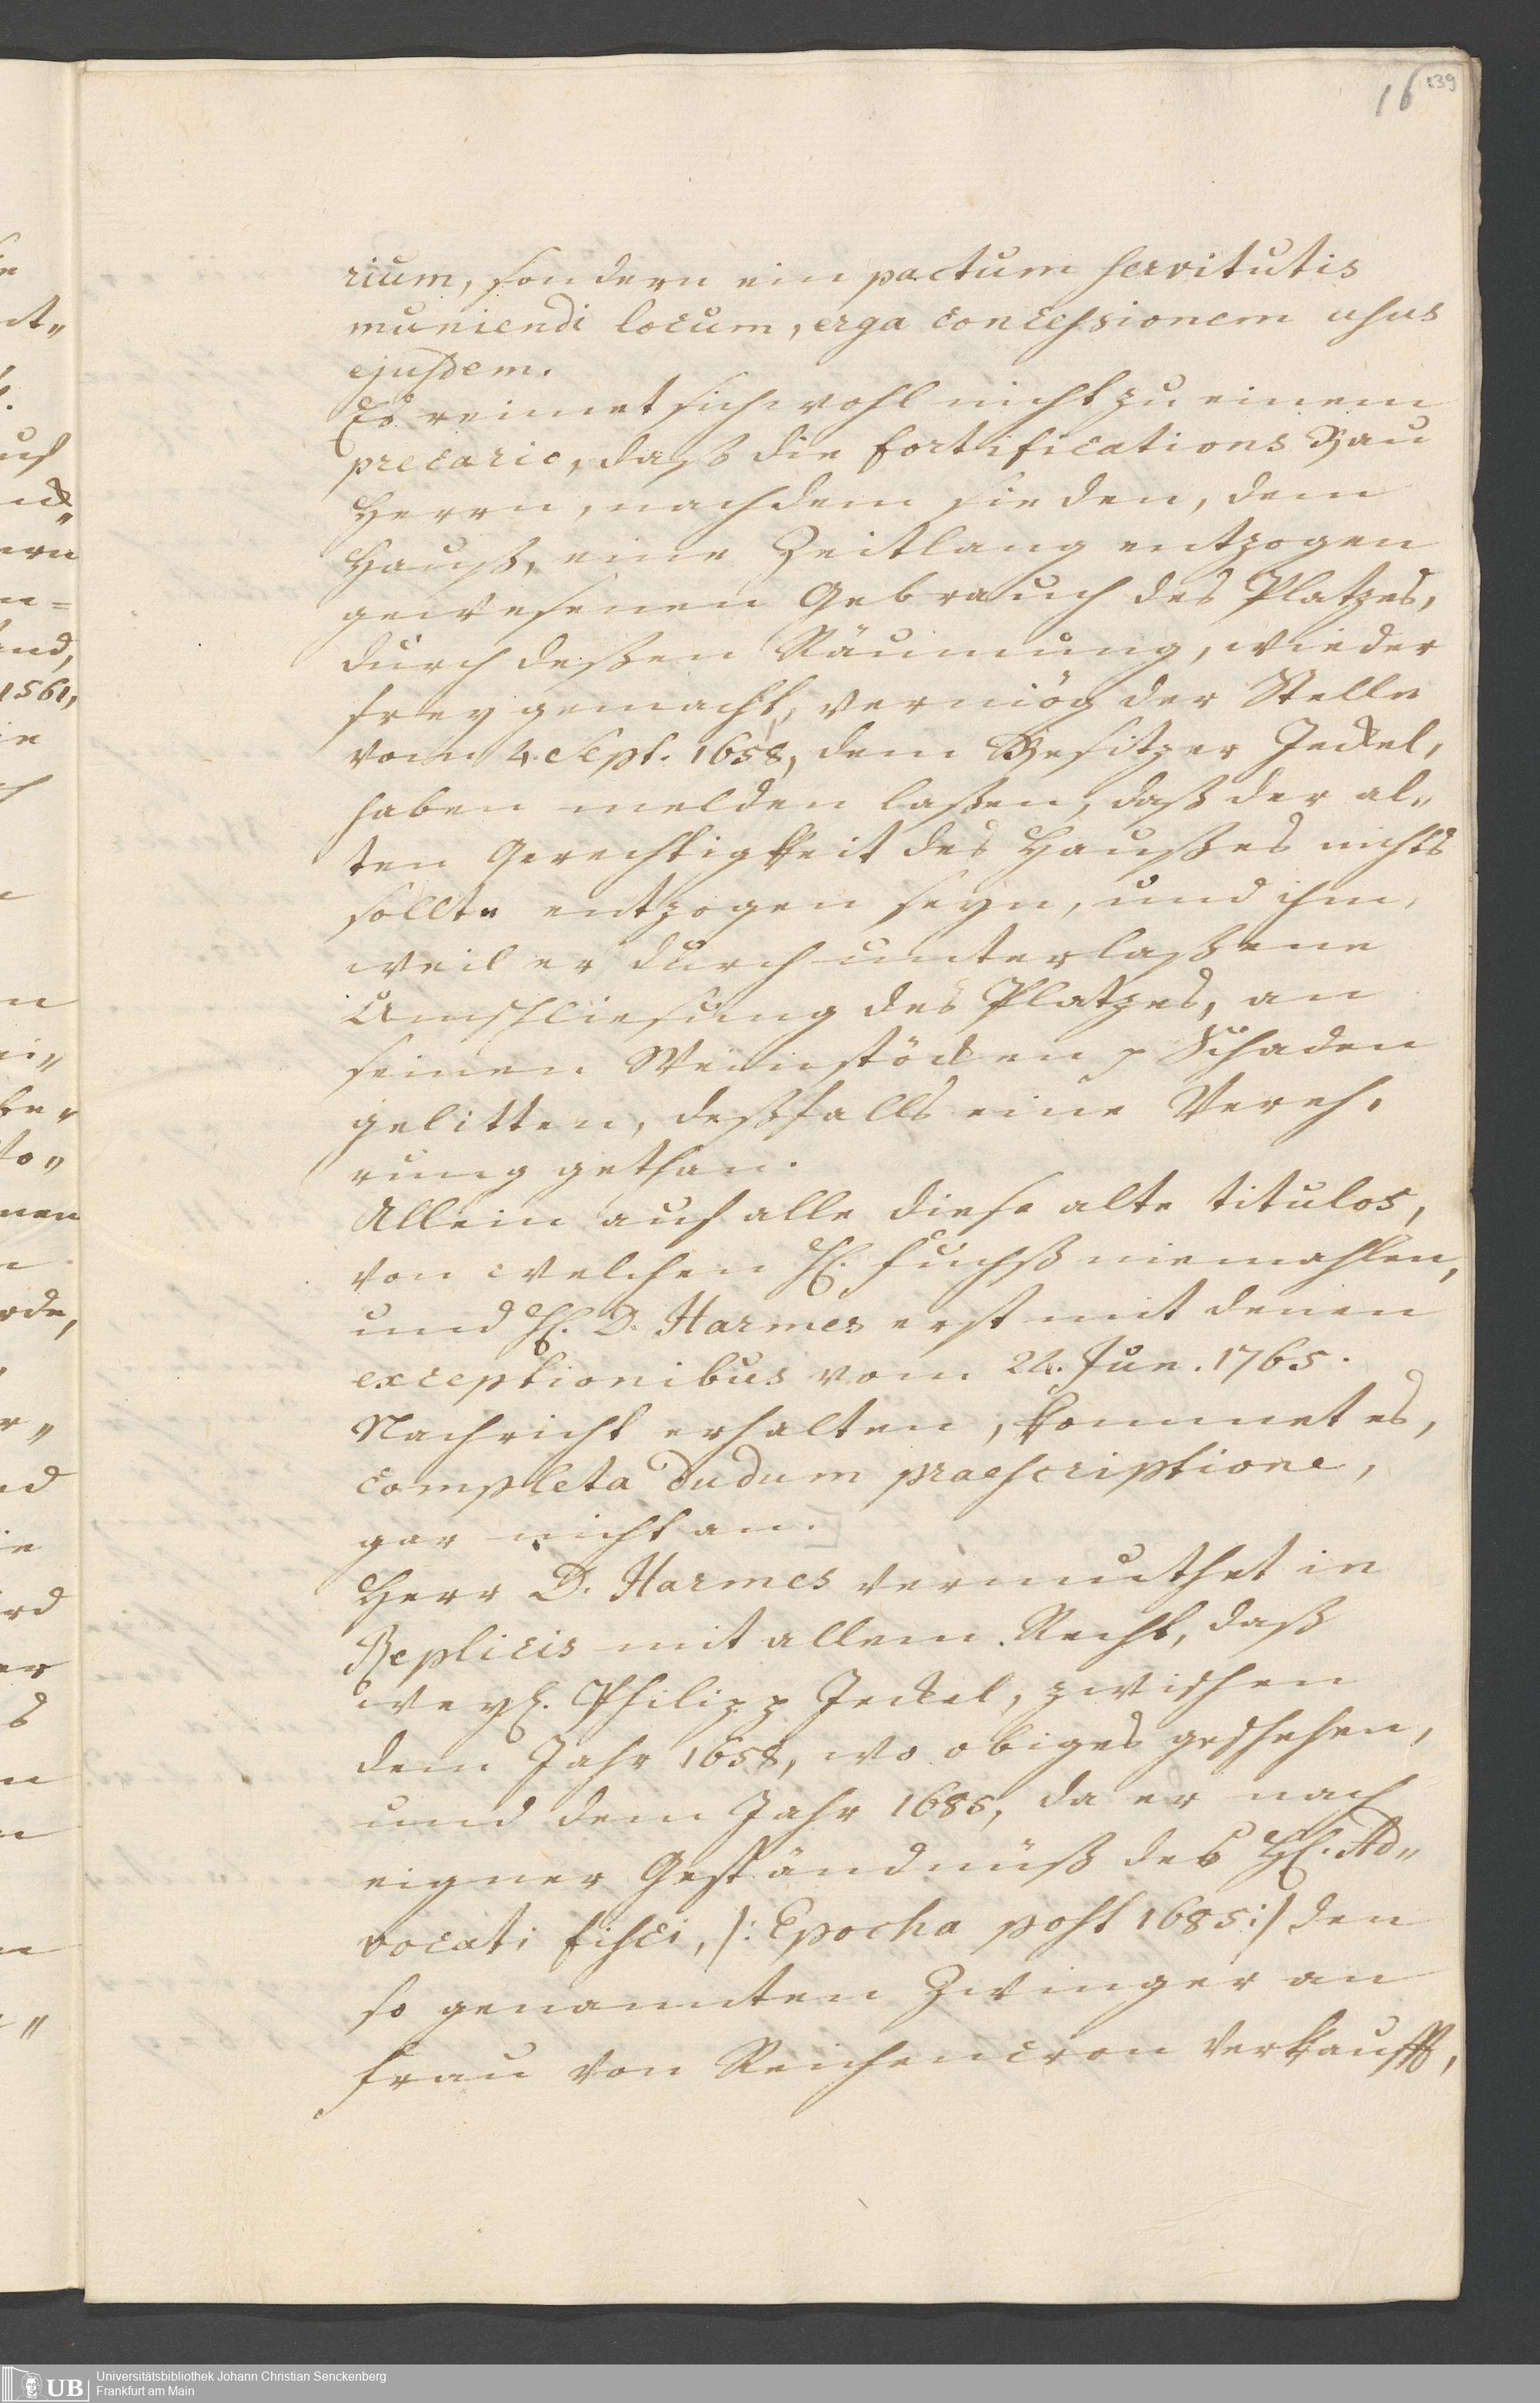 16
139
rium, sondern ein pactum servitutis
muniendi locum, erga concessionem usus
ejusdem.
Es reimet sich wohl nicht zu einem
precario, daß die Fortifications Bau
Herrn, nachdem sie den, dem
Hauß, eine Zeitlang entzogen
gewesenen Gebrauch des Platzes,
durch deßen Räumung, wieder
frey gemacht, vermög der Stelle
vom 4. Sept. 1658, dem Besitzer Jeckel,
haben melden laßen, daß der al„
ten Gerechtigkeit des Haußes nichts
sollte entzogen seyn, und ihm,
weil er durch unterlaßene
Umschliesung des Platzes, an
seinen Weinstöcken p Schaden
gelitten, deßfalls eine Vereh„
rung gethan.
Allein auf alle diese alte titulos,
von welchen H. Fuchß niemahlen,
und H. D. Harmes erst mit denen
exceptionibus vom Jun. 1765.
Nachricht erhalten, kommet es,
completa dudum praescriptione,
gar nicht an.
Herr D. Harmes vermuthet in
Replicis mit allem Recht, daß
weyl. Philipp Jeckel, zwischen
dem Jahr 1658, wo obiges geschehen,
und dem Jahr 1685, da er nach
eigner Geständnüß des H. Ad„
vocati fisci, /: Epocha post 1685 :/ den
so genannten Zwinger an
Frau von Reichencron verkaufft,
nt„
1561,
Universitätsbibliothek Johann Christian Senckenberg
Frankfurt am Main
UB